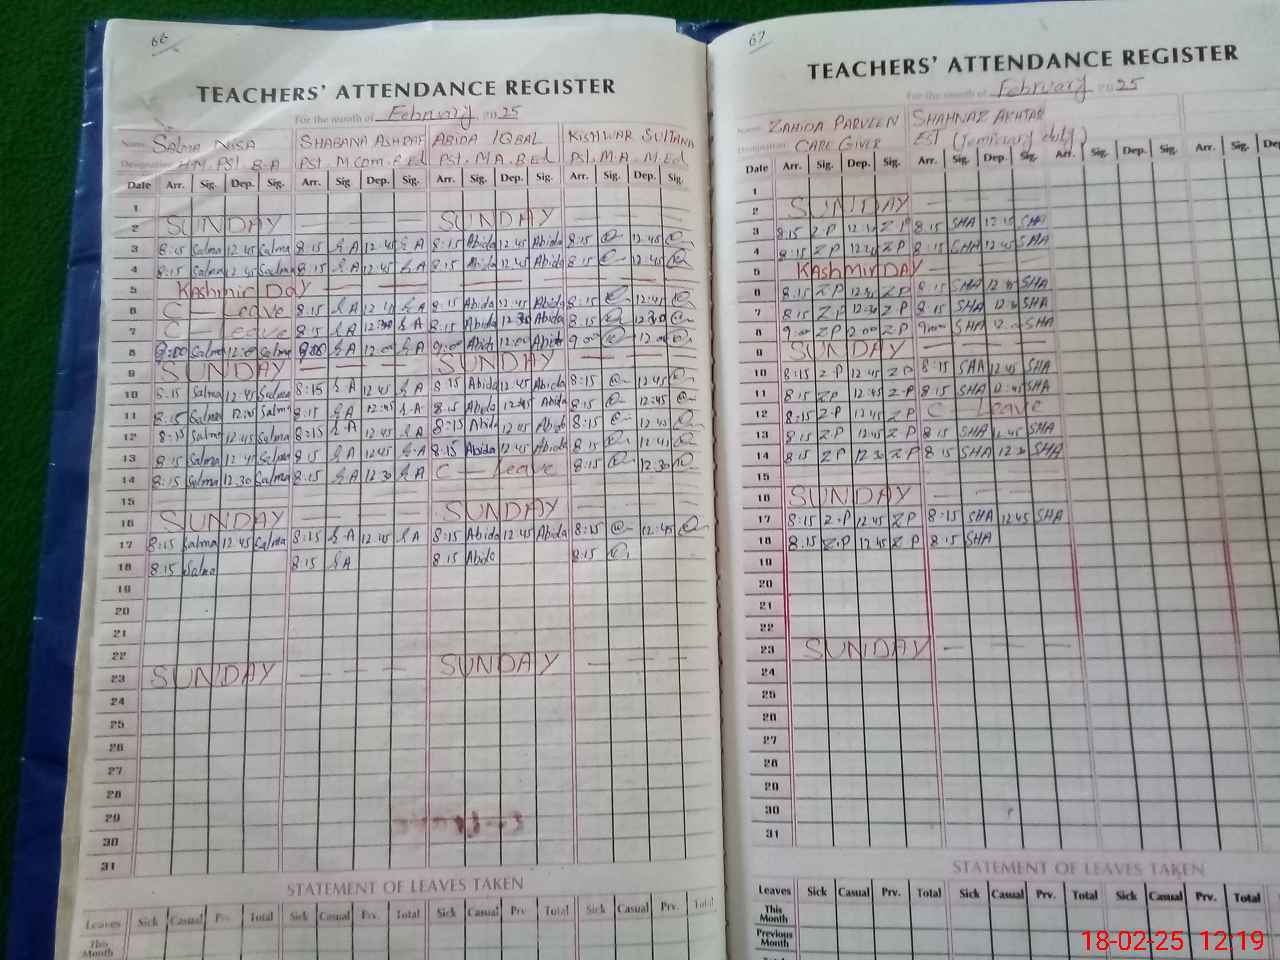 66
TEACHERS' ATTENDANCE REGISTER
For the month of February 2025
Name Salma Nisa SHABANA ASHRAF ABIDA IQBAL KISHWAR SULTANA
Designation H.M. PST. B.A PST. M.Com. B.Ed PST. M.A. B.Ed PST. M.A. M.Ed
Date Arr. Sig. Dep. Sig. Arr. Sig. Dep. Sig. Arr. Sig. Dep. Sig. Arr. Sig. Dep. Sig.
1
2 SUNDAY — — — SUNDAY — — —
3 8:15 Salma 12:45 Salma 8:15 S.A 12:45 S.A 8:15 Abida 12:45 Abida 8:15 12:45
4 8:15 Salma 12:45 Salma 8:15 S.A 12:45 S.A 8:15 Abida 12:45 Abida 8:15 12:45
5 Kashmir Day — — — — — —
6 C — Leave 8:15 S.A S.A 8:15 Abida 12:45 Abida 8:15 12:45
7 C — Leave 8:15 S.A 12:30 S.A 8:15 Abida 12:30 Abida 8:15 12:30
8 9:00 Salma 12:00 Salma 9:00 S.A 12:00 S.A 9:00 Abida 12:00 Abida 9:00 12:00
9 SUNDAY — — — SUNDAY — — —
10 8:15 Salma 12:45 Salma 8:15 S.A 12:45 S.A 8:15 Abida 12:45 Abida 8:15 12:45
11 8:15 Salma 12:45 Salma 8:15 S.A 12:45 S.A 8:15 Abida 12:45 Abida 8:15 12:45
12 8:15 Salma 12:45 Salma 8:15 S.A 12:45 S.A 8:15 Abida 12:45 Abida 8:15 12:45
13 8:15 Salma 12:45 Salma 8:15 S.A 12:45 S.A 8:15 Abida 12:45 Abida 8:15 12:45
14 8:15 Salma 12:30 Salma 8:15 S.A 12:30 S.A C — Leave 8:15 12:30
15
16 SUNDAY — — — SUNDAY — — —
17 8:15 Salma 12:45 Salma 8:15 S.A 12:45 S.A 8:15 Abida 12:45 Abida 8:15 12:45
18 8:15 Salma 8:15 S.A 8:15 Abida 8:15
19
20
21
22
23 SUNDAY — — — SUNDAY — — —
24
25
26
27
28
29
30
31
STATEMENT OF LEAVES TAKEN
Leaves Sick Casual Prv. Total Sick Casual Prv. Total Sick Casual Prv Total Sick Casual Prv. Total
This Month
67
TEACHERS' ATTENDANCE REGISTER
For the month of February 2025
Name ZAHIDA PARVEEN SHAHNAZ AKHTAR
Designation CARE GIVER EST (Temporary duty)
Date Arr. Sig. Dep. Sig. Arr. Sig. Dep. Sig. Arr. Sig. Dep. Sig. Arr. Sig. Dep
1
2 SUNDAY
3 8:15 Z.P Z.P 8:15 SHA 12:45 SHA
4 8:15 ZP 12:45 ZP 8:15 SHA 12:45 SHA
5 KASHMIR DAY — — —
6 8:15 ZP 12:30 ZP 8:15 SHA 12:45 SHA
7 8:15 ZP 12:30 ZP 8:15 SHA 12:30 SHA
8 9:00 ZP 12:00 ZP 9:00 SHA 12:00 SHA
9 SUNDAY — — —
10 8:15 Z.P 12:45 ZP 8:15 SHA 12:45 SHA
11 8:15 ZP 12:45 Z.P 8:15 SHA 12:45 SHA
12 8:15 Z.P 12:45 ZP C — Leave
13 8:15 Z.P 12:45 Z.P 8:15 SHA 12:45 SHA
14 8:15 ZP 12:30 ZP 8:15 SHA 12:30 SHA
15
16 SUNDAY — — —
17 8:15 Z.P 12:45 ZP 8:15 SHA 12:45 SHA
18 8:15 Z.P 12:45 ZP 8:15 SHA
19
20
21
22
23 SUNDAY — — —
24
25
26
27
28
29
30
31
STATEMENT OF LEAVES TAKEN
Leaves Sick Casual Prv. Total Sick Casual Prv. Total Sick Casual Prv. Total Sick
This Month
Previous Month
18-02-25 12:19